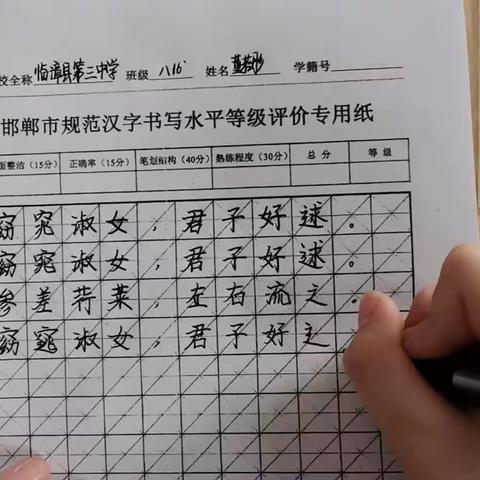 校全称 临漳县第三中学 班级 八16 姓名 学籍号
邯郸市规范汉字书写水平等级评价专用纸
面整洁（15分） 正确率（15分） 笔划结构（40分） 熟练程度（30分） 总分 等级
窈窕淑女，君子好逑。
窈窕淑女，君子好逑。
参差荇菜，左右流之。
窈窕淑女，君子好之